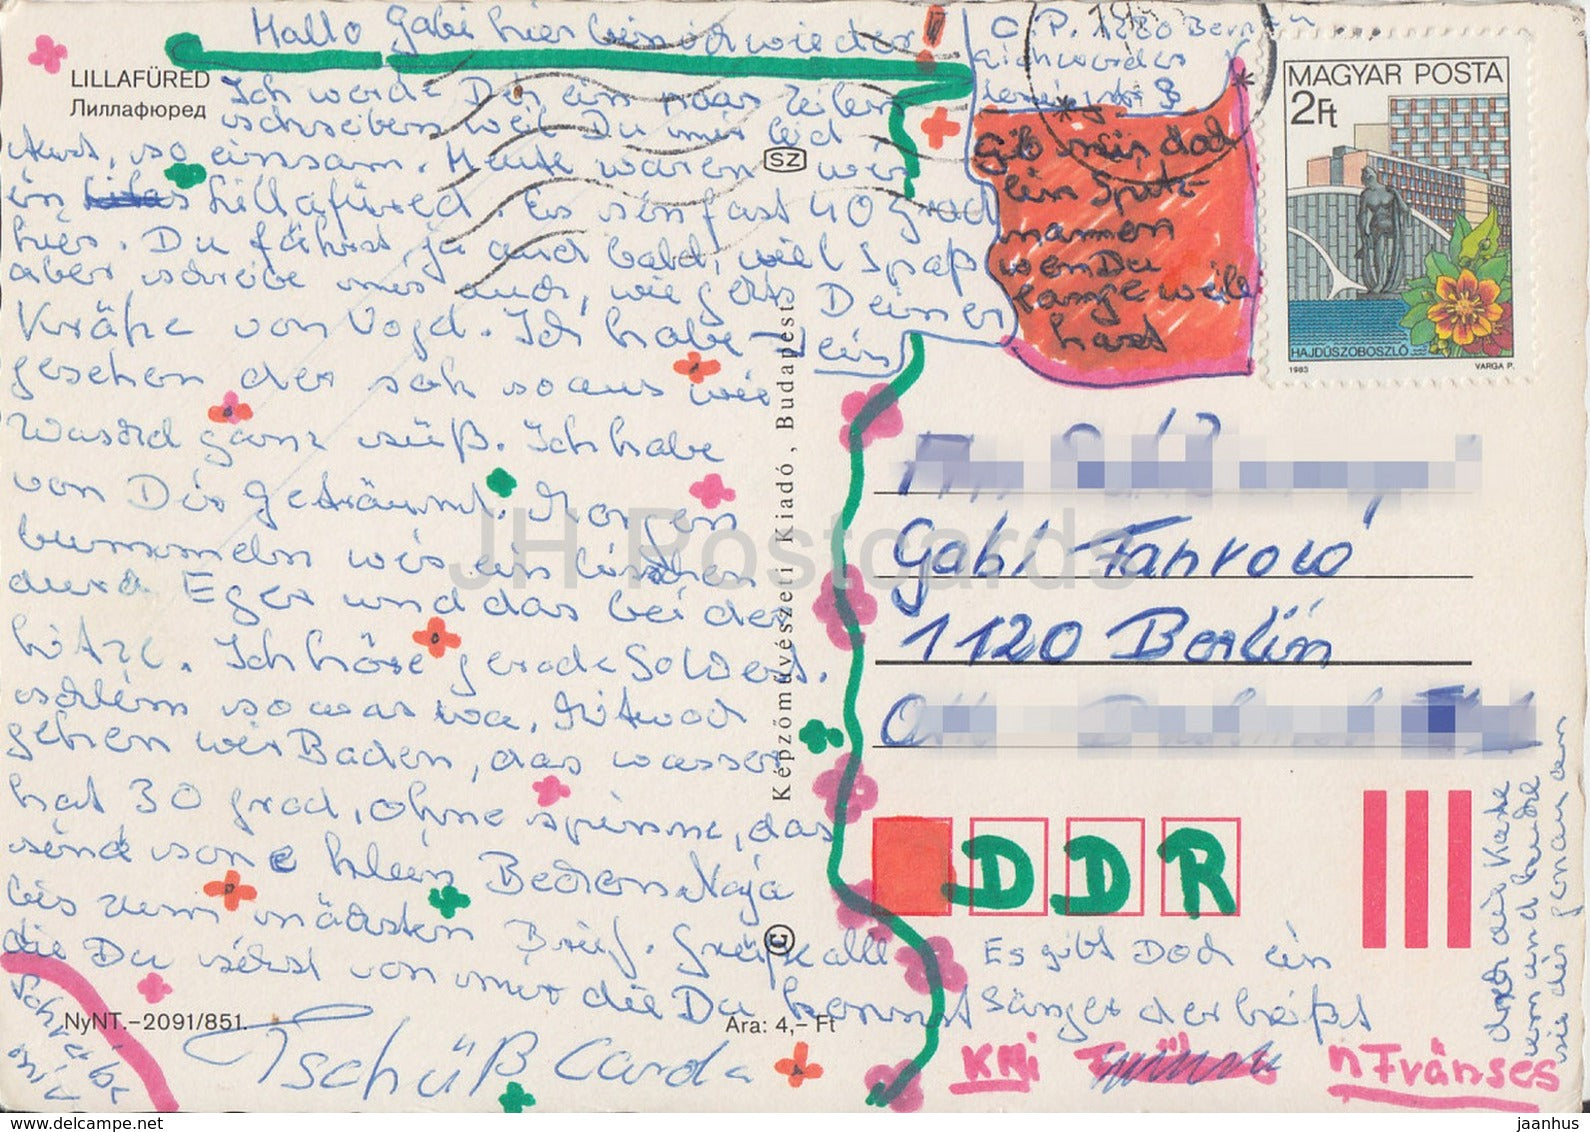 Hallo Gabi hier bin ich wieder!
LILLAFÜRED
Лиллафюред
Ich werde Dir ein paar Zeilen
schreiben weil Du mir leid
tust, so einsam. Heute waren wir
in Lillafüred. Es sin fast 40 grad
hier. Du fährst ja auch bald, viel Spaß
aber schreibe mir auch, wie gehts Deiner
Krähe von Vogel. Ich habe ein
gesehen der sah so aus wie
ganz süß. Ich habe
von Dir geträumt. Morgen
bummeln wir ein bischen
durch Eger und das bei der
hitze. Ich höre gerade
schlim so was wa, Mitwoch
gehen wir Baden, das wasser
hat 30 grad, ohne spinne, das
sind son klein Becken Naja
bis zum nächsten Brief. Grüße alle
die Du siehst von mir die Du kennst
Schreibe mir
NyNT.-2091/851.
Ára: 4,- Ft
Tschüß Carda
SZ
Képzőművészeti Kiadó, Budapest
©
C. P. 1280 Bernau
Gib mir doch
ein Spitz-
namen
wen Du
langeweile
hast
MAGYAR POSTA
2Ft
HAJDÚSZOBOSZLÓ
1983 VARGA P.
Gabi
1120 Berlin
DDR
Es gibt Doch ein
Sänger der heißt
die Karte
JH Postcards
www.delcampe.net
jaanhus